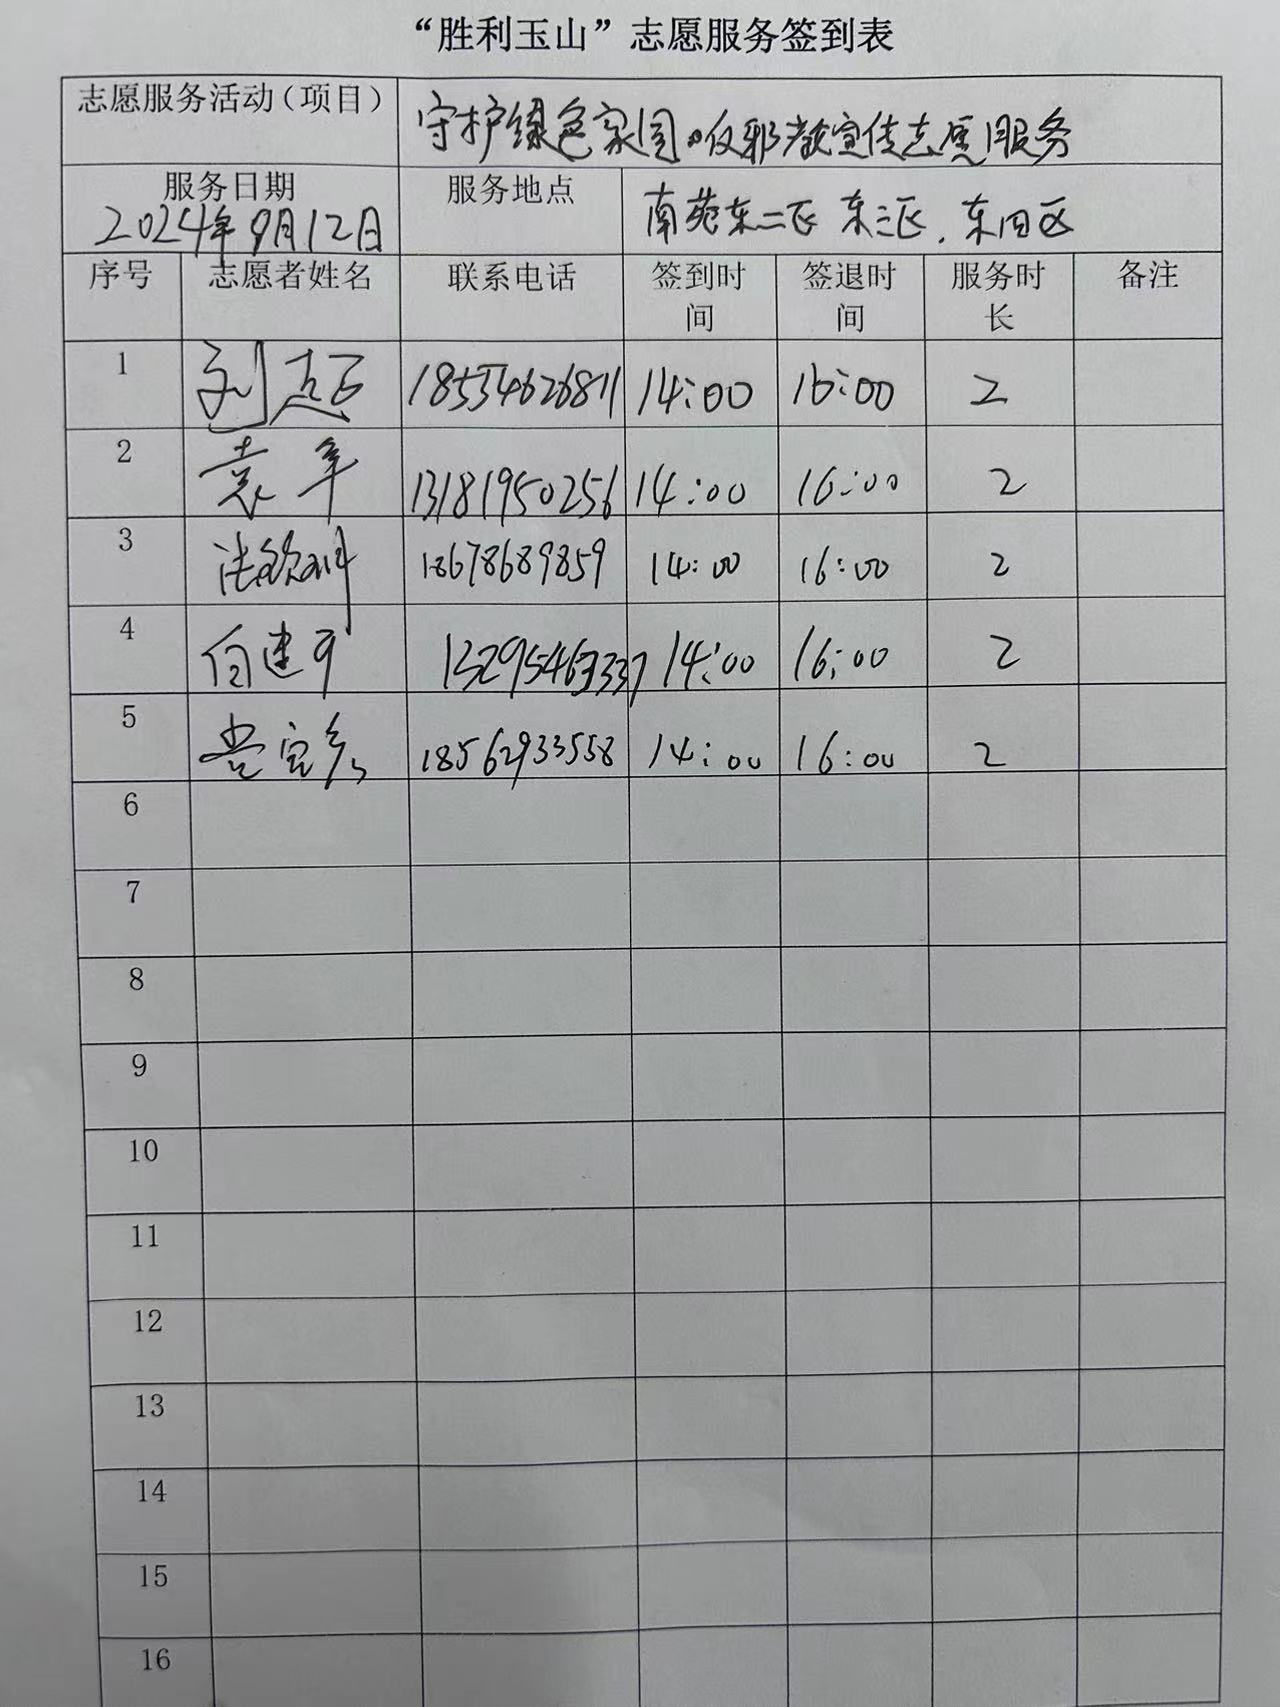 “胜利玉山”志愿服务签到表
志愿服务活动（项目） 守护绿色家园。反邪教宣传志愿服务
服务日期 2024年9月12日 服务地点 南苑东二区 东三区. 东四区
序号 志愿者姓名 联系电话 签到时间 签退时间 服务时长 备注
1 刘 18554626811 14:00 16:00 2
2 袁军 13181950256 14:00 16:00 2
3 18678689859 14:00 16:00 2
4 白建平 14:00 16:00 2
5 18562933558 14:00 16:00 2
6
7
8
9
10
11
12
13
14
15
16